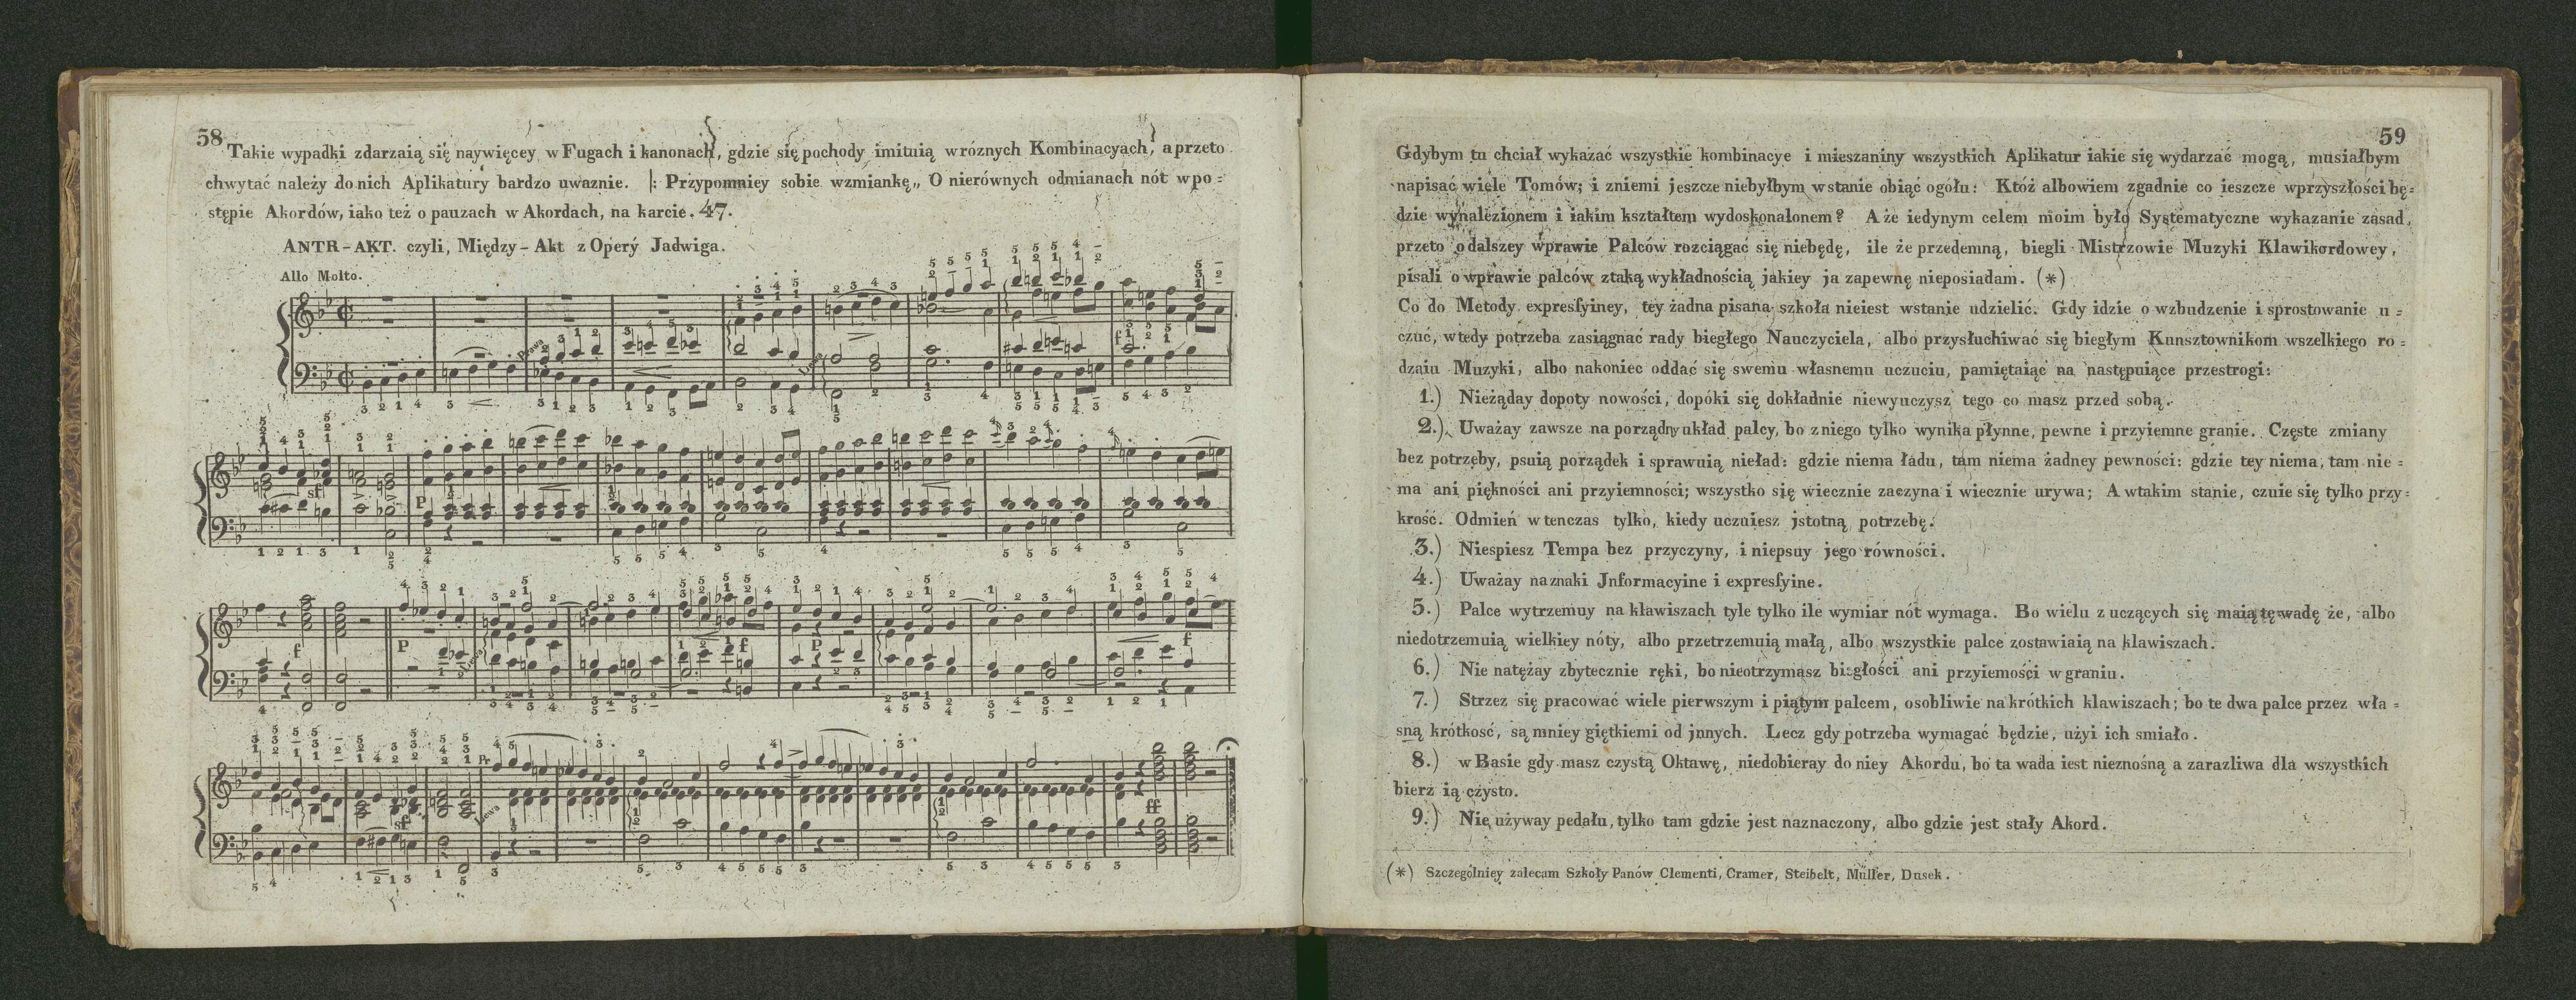 58
Takie wypadki zdarzaią się naywięcey w Fugach i kanonach, gdzie się pochody imituią w róznych Kombinacyach, a przeto
chwytać należy do nich Aplikatury bardzo uwaznie. |: Przypomniey sobie wzmiankę „ O nierównych odmianach nót w po =
stępie Akordów, iako też o pauzach w Akordach, na karcie. 47.
ANTR - AKT. czyli, Między - Akt z Opery Jadwiga.
Allo Molto.
59
Gdybym tu chciał wykazać wszystkie kombinacye i mieszaniny wszystkich Aplikatur iakie się wydarzać mogą, musiałbym
napisać wiele Tomów; i zniemi jeszcze niebyłbym w stanie obiąć ogółu: Któż albowiem zgadnie co ieszcze wprzyszłości bę =
dzie wynalezionem i iakim kształtem wydoskonalonem? A że iedynym celem moim było Systematyczne wykazanie zasad,
przeto o dalszey wprawie Palców rozciągać się niebędę, ile że przedemną, biegli Mistrzowie Muzyki Klawikordowey,
pisali o wprawie palców ztaką wykładnością jakiey ja zapewnę nieposiadam. (*)
Co do Metody expressyiney, tey żadna pisana szkoła nieiest wstanie udzielić. Gdy idzie o wzbudzenie i sprostowanie u =
czuć, wtedy potrzeba zasiągnać rady biegłego Nauczyciela, albo przysłuchiwać się biegłym Kunsztownikom wszelkiego ro =
dzaiu Muzyki, albo nakoniec oddać się swemu własnemu uczuciu, pamiętaiąc na następuiące przestrogi:
1.) Nieżąday dopoty nowości, dopóki się dokładnie niewyuczysz tego co masz przed sobą.
2.) Uważay zawsze na porządny układ palcy, bo z niego tylko wynika płynne, pewne i przyiemne granie. Częste zmiany
bez potrzeby, psuią porządek i sprawuią nieład: gdzie niema ładu, tam niema żadney pewności: gdzie tey niema, tam nie =
ma ani piękności ani przyiemności; wszystko się wiecznie zaczyna i wiecznie urywa; A wtakim stanie, czuie się tylko przy =
krość. Odmień w tenczas tylko, kiedy uczuiesz jstotną potrzebę.
3.) Niespiesz Tempa bez przyczyny, i niepsuy jego równości.
4.) Uważay na znaki Jnformacyine i expressyine.
5.) Palce wytrzemuy na kławiszach tyle tylko ile wymiar nót wymaga. Bo wielu z uczących się maią tę wadę że, albo
niedotrzemuią wielkiey nóty, albo przetrzemuią małą, albo wszystkie palce zostawiaią na klawiszach.
6.) Nie natężay zbytecznie ręki, bo nieotrzymasz biegłości ani przyiemości w graniu.
7.) Strzez się pracować wiele pierwszym i piątym palcem, osobliwie na krótkich klawiszach; bo te dwa palce przez wła =
sną krótkość, są mniey giętkiemi od jnnych. Lecz gdy potrzeba wymagać będzie, użyi ich smiało.
8.) w Basie gdy masz czystą Oktawę, niedobieray do niey Akordu, bo ta wada iest nieznośną a zarazliwa dla wszystkich
bierz ią czysto.
9.) Nie używay pedału, tylko tam gdzie jest naznaczony, albo gdzie jest stały Akord.
(*) Szczególniey zalecam Szkoły Panów Clementi, Cramer, Steibelt, Müller, Dusek.